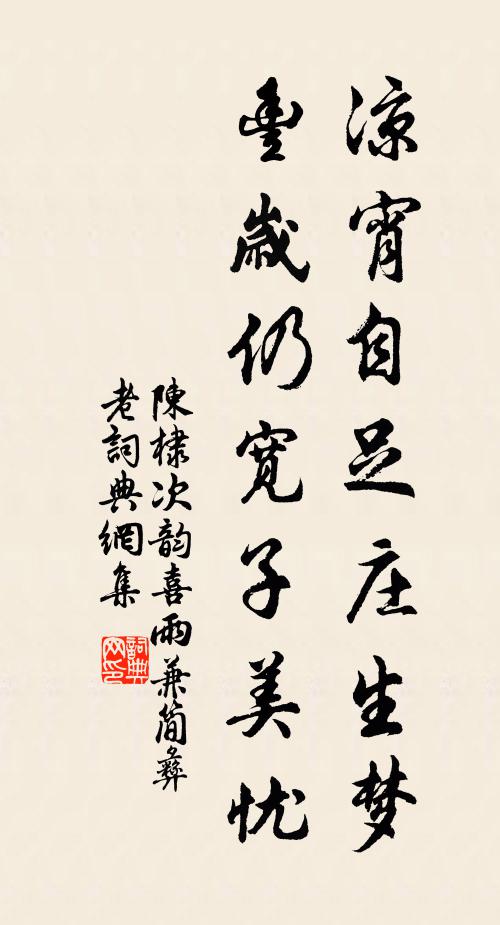 凉宵自足庄生梦
豊歳仍寬子美忧
陳棣次韵喜雨兼簡彝
老詞典網集
詞典网印